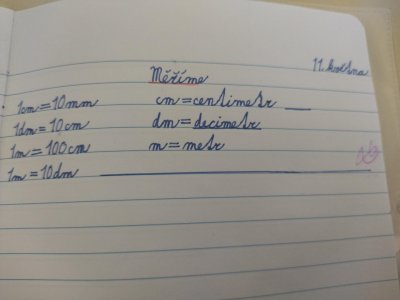 11. května
Měříme
1cm = 10mm cm = centimetr
1dm = 10cm dm = decimetr
1m = 100cm m = metr
1m = 10dm